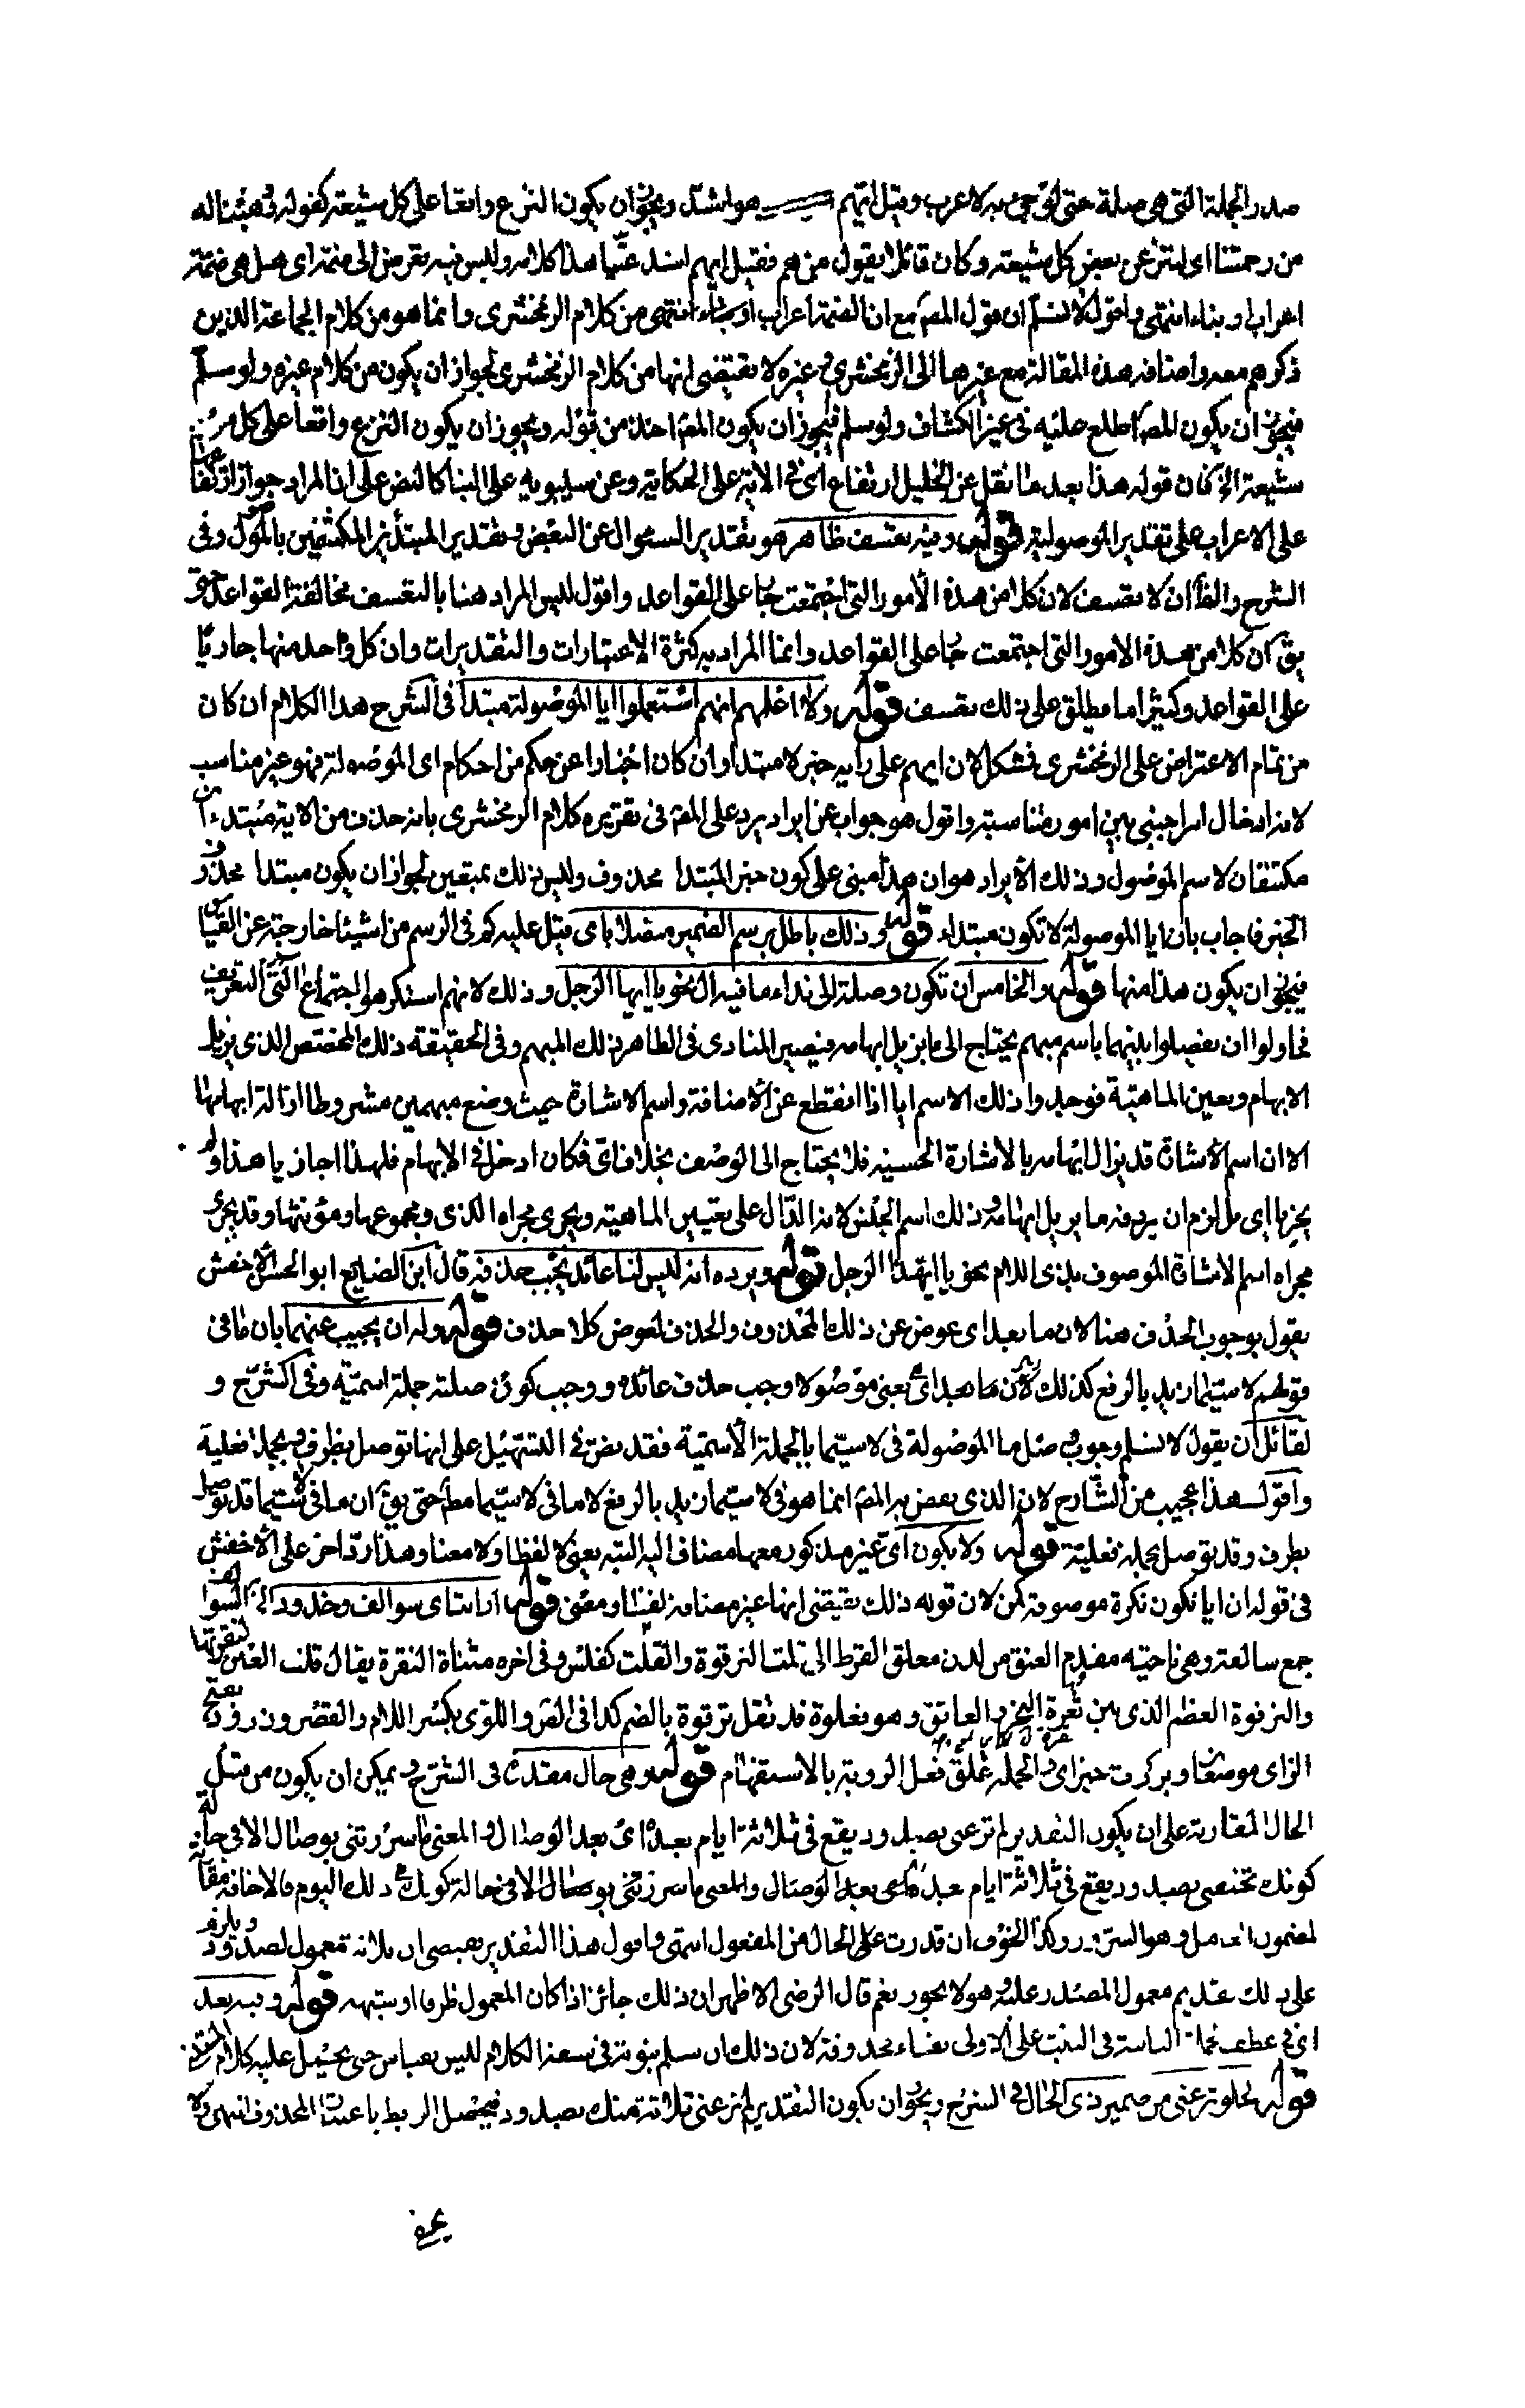 صدر الجملة التي هي صلة حتى لو جئ به لاعرب وقيل ايهم هو اشد ويجوز ان يكون النزع واقعا على كل شيعة كقوله ووهبنا له
من رحمتنا اي لننزعن بعض كل شيعة وكان قائلا يقول من هم فقيل ايهم اشد عتيا هذا كلامه وليس فيه تعرض الى ضمة اي هل هي ضمة
اعراب او بناء انتهى واقول لا نسلم ان قول المصـ مع ان الضمة اعراب او بناء انتهى من كلام الزمخشري وانما هو من كلام الجماعة الذين
ذكرهم معه واضافة هذه المقالة مع غيرها الى الزمخشري وغيره لا يقتضى انها من كلام الزمخشري لجواز ان يكون من كلام غيره ولو سلم
فيجوز ان يكون المصـ اطلع عليه في غير الكشاف ولو سلم فيجوز ان يكون المصـ اخذ من قوله ويجوز ان يكون النزع واقعا على كل من
شيعة الخ فان قوله هذا بعد ما نقل عن الخليل ارتفاع اي في الاية على الحكاية وعن سيبويه على البنا كالنص على ان المراد جواز ارتفاعها
على الاعراب على تقدير الموصولية قوله وفيه تعسف ظاهر هو تقدير السؤال عن البعض وتقدير المبتدأين المكتنفين بالموصول وفى
الشرح والظ ان لا تعسف لان كلا من هذه الأمور التي اجتمعت جار على القواعد واقول ليس المراد هنا بالتعسف مخالفة القواعد حتى
يق ان كلا من هذه الامور التي اجتمعت جار على القواعد وانما المراد به كثرة الاعتبارات والتقديرات وان كل واحد منها جاريا
على القواعد وكثيرا ما يطلق على ذلك تعسف قوله ولا اعلمهم استعملوا ايا الموصولة مبتدأ في الشرح هذا الكلام ان كان
من تمام الاعتراض على الزمخشري فشكل لان ايهم على رأيه خبر لا مبتدأ وان كان اخبارا عن حكم من احكام اى الموصولة فهو غير مناسب
لانه ادخال امر اجنبي بين امور متناسبة واقول هو جواب عن ايراد يرد على المصـ في تقريره كلام الزمخشري بانه حذف من الاية مبتدءان
مكتنفان لاسم الموصول وذلك الأيراد هو ان هذا مبنى على كون خبر المبتدا محذوف وليس ذلك بمتعين لجواز ان يكون مبتدا محذوف
الخبر فاجاب بان ايا الموصولة لا تكون مبتداء قوله وذلك باطل برسم الضمير متصلا باى قيل عليه كم فى الرسم من اشيئا خارجة عن القياس
فيجوز ان يكون هذا منها قوله والخامس ان تكون وصلة الى نداء ما فيه ال نحو يا ايها الرجل وذلك لانهم استكرهوا اجتماع آلتى التعريف
فحاولوا ان يفصلوا بينهما باسم مبهم يحتاج الى ما يزيل ابهامه فيصير المنادى فى الظاهر ذلك المبهم وفى الحقيقة ذلك المختص الذى يزيل
الابهام ويعين الماهية فوجدوا ذلك الاسم ايا اذا انقطع عن الاضافة واسم الاشارة حيث وضع مبهمين مشروطا ازالة ابهامها
الا ان اسم الاشارة قد يزال ابهامه بالأشارة الحسيه فلا يحتاج الى الوصف بخلاف اى فكان ادخل في الابهام فلهذا اجاز يا هذا ولم
يجز يا اى بل لزم ان يردفه ما يزيل ابهامه وذلك اسم الجنس لانه الدال على تعيين الماهية ويجرى مجراه الذى ومجموعها ومؤنثها وقد يجرى
مجراه اسم الاشارة الموصوف بذى اللام نحو يا ايهذا الرجل قوله ويرده انه ليس لنا عائد يجب حذفه قال ابن الضايع ابو الحسن الاخفش
يقول بوجوب الحذف هنا لان ما بعد اى عوض عن ذلك المحذوف والحذف لعوض كلا حذف قوله وله ان يجيب عنهما بان ما فى
قولهم لا سيما زيد بالرفع كذلك لان ما بعد اى يعنى موصولا وجب حذف عائده ووجب كون صلته جملة اسمية وفى الشرح و
لقائل ان يقول لا نسلم وجوب وصل ما الموصولة فى لا سيما بالجملة الأسمية فقد نص فى التسهيل على انها توصل بظرف وبجملة فعلية
واقول هذا عجيب من الشارح لان الذى يعرض به المصـ انما هو فى لا سيما زيد بالرفع لا ما فى لا سيما مطـ حتى يق ان ما فى لا سيما قد توصل
بظرف وقد توصل بجملة فعلية قوله ولا يكون اى غير مذكور معها مضاف اليه البته يعنى لا لفظا ولا معنا وهذا رد اخر على الأخفش
فى قوله ان ايا تكون نكرة موصوفة لكن لان قوله ذلك يقتضى انها غير مضافة لفظا ومعنى قوله ارايت اى سوالف وخدود الخ السوالف
جمع سالفة وهي ناحيته مقدم العنق من لدن معلق القرط الى قلت الترقوة والقلت كفلس وفى اخره مثناة النقرة يقال قلت العين لنقرتها
والترقوة العظم الذى بين ثغرة النحر والعاتق وهو فعلوة قد تقل ترقوة بالضم كذا فى الصـ واللوى بكسر اللام والقصر وزرود بفتح
الزاى موضعان وبركت خبر اى والجملة علق فعل الروية بالاستفهام قوله وهي حال مقدرة فى الشرح ويمكن ان يكون من قبيل
الحال المقارنة على ان يكون التقدير لم ترعى بصدود يقع فى ثلاثة ايام بعده اى بعد الوصال والمعنى ما سررتنى بوصال الا فى حالة
كونك تختصى بصدود يقع فى ثلاثة ايام بعده اى بعد الوصال والمعنى ما سررتنى بوصال الا فى حالة كونك ذلك اليوم فالاخافة مقارنة
لمضمون العامل وهو السرور وكذا الخوف ان قدرت على الحال من المفعول انتهى واقول هذا التقدير يقتضى ان ثلاثة معمول لصدود ويلزم
على ذلك تقديم معمول المصدر عليه وهو لا يجوز نعم قال الرضى الاظهر ان ذلك جائز اذا كان المعمول ظرفا او شبهه قوله وفيه بعد
اى فى عطف جملة الثانية فى البيت على الاولى بفاء محذوفة لان ذلك ان سلم ثبوته فى سعة الكلام ليس بقياس حتى يحمل عليه كلام
قوله لخلو ترعنى من ضمير ذى الحال فى الشرح ويجوز ان يكون التقدير لم ترعنى ثلاثة منك بصدود فيحصل الربط باعتبار المحذوف انتهى ولا
يخفى